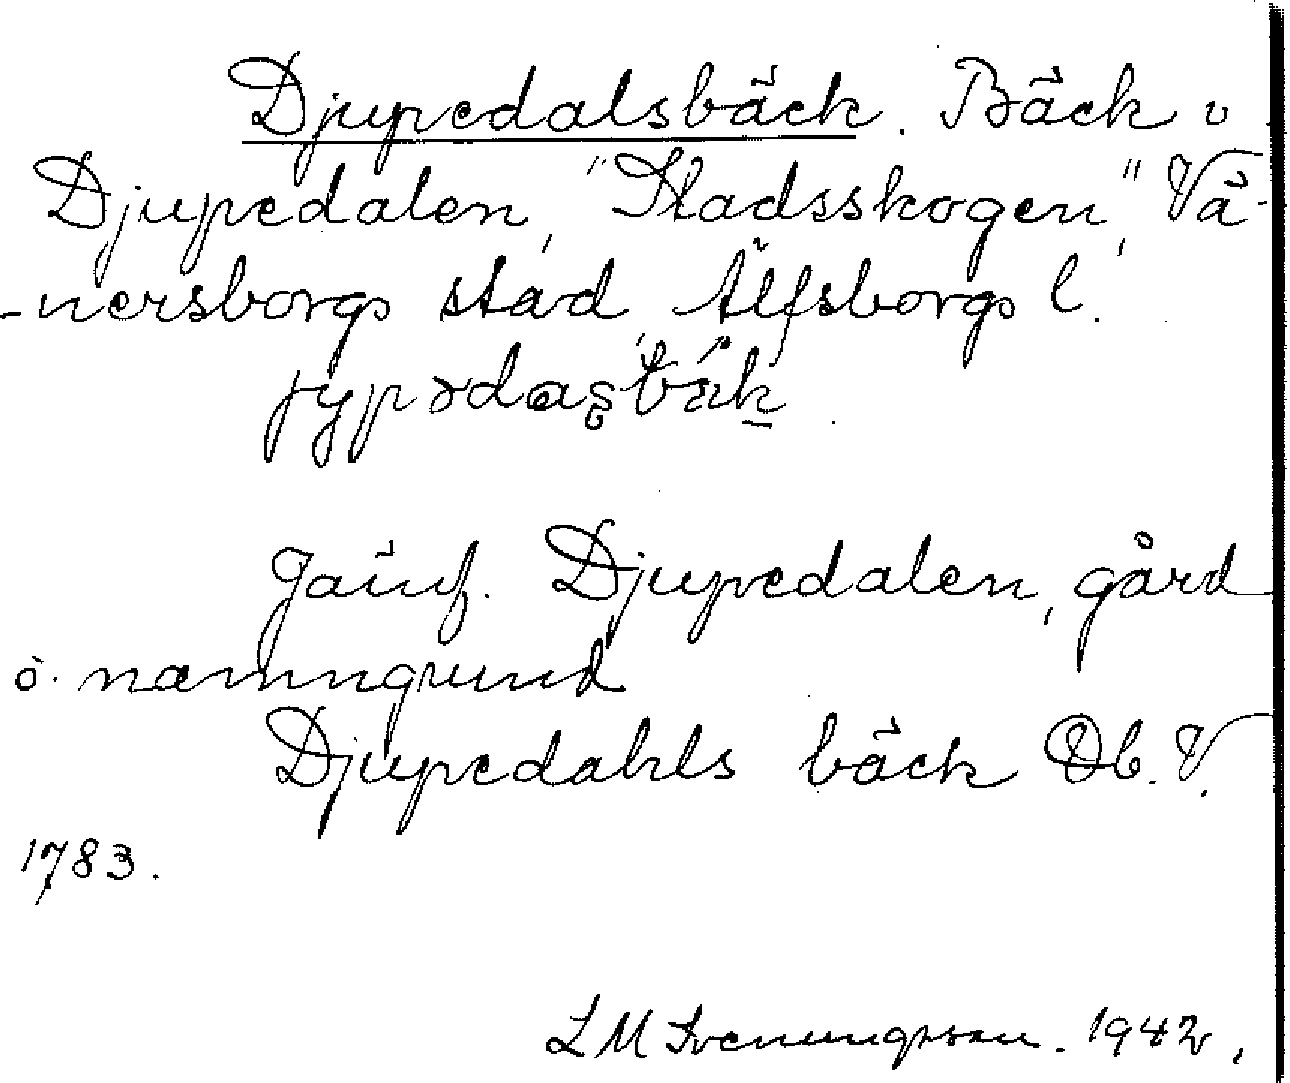 Djupedalsbäck. Bäck i
Djupedalen, "Stadsskogen", Vä-
-nersborgs stad, Älfsborgs l.
jypədas̥bäk
Jämf. Djupedalen, gård
o. namngrund
Djupedahls bäck Db. V.
1783.
L M Svenungsson. 1942.